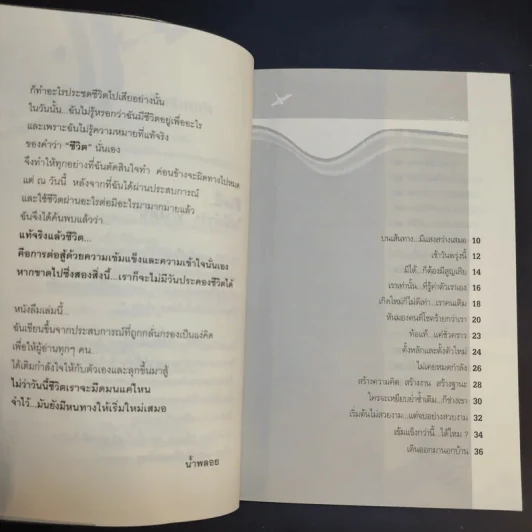 ก็ทำอะไรประชดชีวิตไปเสียอย่างนั้น
ในวันนั้น...ฉันไม่รู้หรอกว่าฉันมีชีวิตอยู่เพื่ออะไร
และเพราะฉันไม่รู้ความหมายที่แท้จริง
ของคำว่า “ชีวิต” นั่นเอง
จึงทำให้ทุกอย่างที่ฉันตัดสินใจทำ ค่อนข้างจะผิดทางไปหมด
แต่ ณ วันนี้ หลังจากที่ฉันได้ผ่านประสบการณ์
และใช้ชีวิตผ่านอะไรต่อมิอะไรมามากมายแล้ว
ฉันจึงได้ค้นพบแล้วว่า
แท้จริงแล้วชีวิต...
คือการต่อสู้ด้วยความเข้มแข็งและความเข้าใจนั่นเอง
หากขาดไปซึ่งสองสิ่งนี้...เราก็จะไม่มีวันประคองชีวิตได้
หนังสือเล่มนี้...
ฉันเขียนขึ้นจากประสบการณ์ที่ถูกกลั่นกรองเป็นแง่คิด
เพื่อให้ผู้อ่านทุกๆ คน
ได้เติมกำลังใจให้กับตัวเองและลุกขึ้นมาสู้
ไม่ว่าวันนี้ชีวิตเราจะมืดมนแค่ไหน
จำไว้...มันยังมีหนทางให้เริ่มใหม่เสมอ
น้ำพลอย
บนเส้นทาง...มีแสงสว่างเสมอ 10
เช้าวันพรุ่งนี้ 12
มีได้...ก็ต้องมีสูญเสีย 14
เราเท่านั้น...ที่รู้ค่าตัวเราเอง 16
เกิดใหม่ก็ไม่ดีเท่า...เราคนเดิม 18
หันมองคนที่โชคร้ายกว่าเรา 20
ท้อแท้...แค่ชั่วคราว 23
ตั้งหลักและตั้งตัวใหม่ 24
ไม่เคยหมดกำลัง 26
สร้างความคิด สร้างงาน สร้างฐานะ 28
ใครจะเหยียบย่ำซ้ำเติม...ก็ช่างเรา 30
เริ่มต้นไม่สวยงาม...แต่จบอย่างสวยงาม 32
เข้มแข็งกว่านี้...ได้ไหม ? 34
เดินออกมานอกบ้าน 36